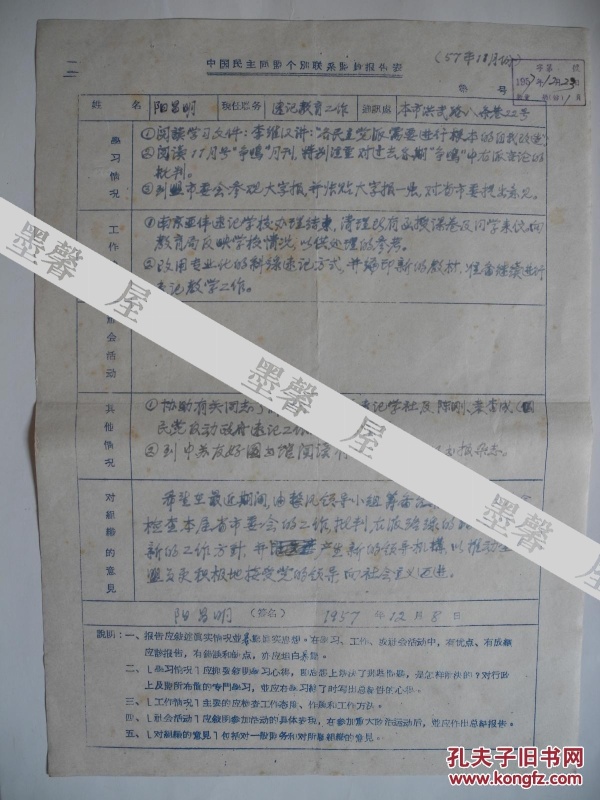 (57年12月份)
中国民主同盟个别联系盟员报告表
字第 号
1957年12月23日
姓名 阳昌明 现任职务 速记教育工作 通讯处 本市洪武路八条巷22号
学习情况
①阅读学习文件：李维汉讲："各民主党派需要进行根本的自我改造
②阅读11月号"争鸣"月刊，特别注重对过去各期"争鸣"中右派言论的
批判。
③到盟市委会参观大字报，并张贴大字报一张，对省市委提出意见。
工作
①南京亚伟速记学校办理结束，清理所有函授课卷及同学来信，向
教育局反映学校情况，以供处理的参考。
②改用专业化的斜线速记方式，并编印新的教材，准备继续进行
速记教学工作。
社会活动
其他情况
①协助有关同志了 速记学社及陈刚、
民党反动政府速记工作
②到中苏友好图书馆阅读 书报杂志。
对组织的意见
希望在最近期间，由整风领导小组筹备
检查本届省市委会的工作，批判右派路线的
新的工作方针，并 产生新的领导机构，以推动全
盟员更积极地接受党的领导向社会主义迈进。
阳昌明 (签名) 1957年12月8日
说明：一、报告应做进真实情况并暴露真实思想。在学习、工作、及社会活动中，有优点、有成绩
应该报告，有错误和缺点，亦应坦白暴露。
二、「学习情况」应扼要叙明学习心得，
上及盟所布置的专门学习，并应在学习终了时写出总结性的心得。
三、「工作情况」主要的应检查工作态度、作风和工作方法。
四、「社会活动」应叙明参加活动的具体表现，在参加重大政治运动后，并应作出总结报告。
五、「对组织的意见」包括对一般盟务和对所属组织的意见。
墨馨屋
墨馨屋
墨馨屋
孔夫子旧书网
www.kongfz.com